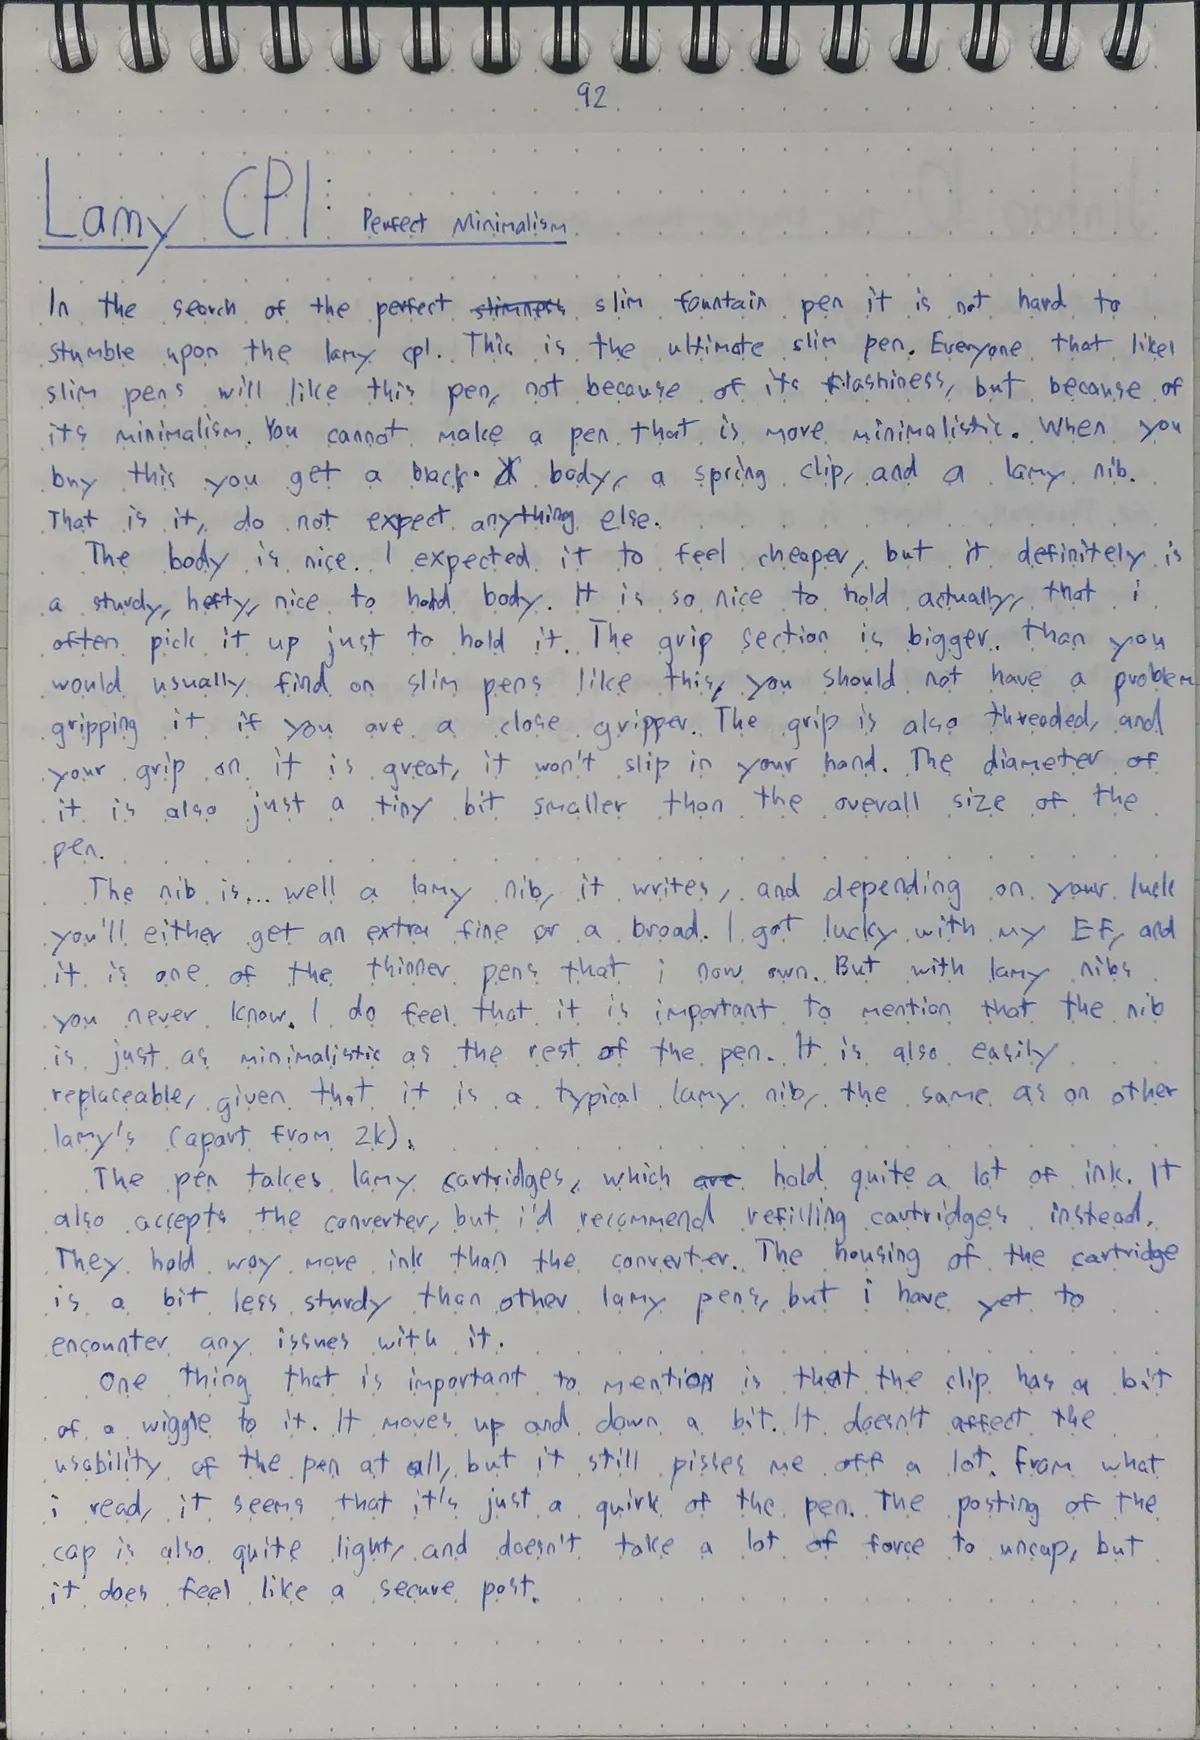 92
Lamy CP1: Perfect Minimalism
In the search of the perfect slimness slim fountain pen it is not hard to
stumble upon the lamy cp1. This is the ultimate slim pen. Everyone that likes
slim pens will like this pen, not because of its flashiness, but because of
its minimalism. You cannot make a pen that is more minimalistic. When you
buy this you get a black body, a spring clip, and a lamy nib.
That is it, do not expect anything else.
The body is nice. I expected it to feel cheaper, but it definitely is
a sturdy, hefty, nice to hold body. It is so nice to hold actually, that i
often pick it up just to hold it. The grip section is bigger than you
would usually find on slim pens like this, you should not have a problem
gripping it if you are a close gripper. The grip is also threaded, and
your grip on it is great, it won't slip in your hand. The diameter of
it is also just a tiny bit smaller than the overall size of the
pen.
The nib is... well a lamy nib, it writes, and depending on your luck
you'll either get an extra fine or a broad. I got lucky with my EF, and
it is one of the thinner pens that i now own. But with lamy nibs
you never know. I do feel that it is important to mention that the nib
is just as minimalistic as the rest of the pen. It is also easily
replaceable, given that it is a typical lamy nib, the same as on other
lamy's (apart from 2k).
The pen takes lamy cartridges, which are hold quite a lot of ink. It
also accepts the converter, but i'd recommend refilling cartridges instead.
They hold way more ink than the converter. The housing of the cartridge
is a bit less sturdy than other lamy pens, but i have yet to
encounter any issues with it.
One thing that is important to mention is that the clip has a bit
of a wiggle to it. It moves up and down a bit. It doesn't affect the
usability of the pen at all, but it still pisses me off a lot. From what
i read, it seems that it's just a quirk of the pen. The posting of the
cap is also quite light, and doesn't take a lot of force to uncap, but
it does feel like a secure post.